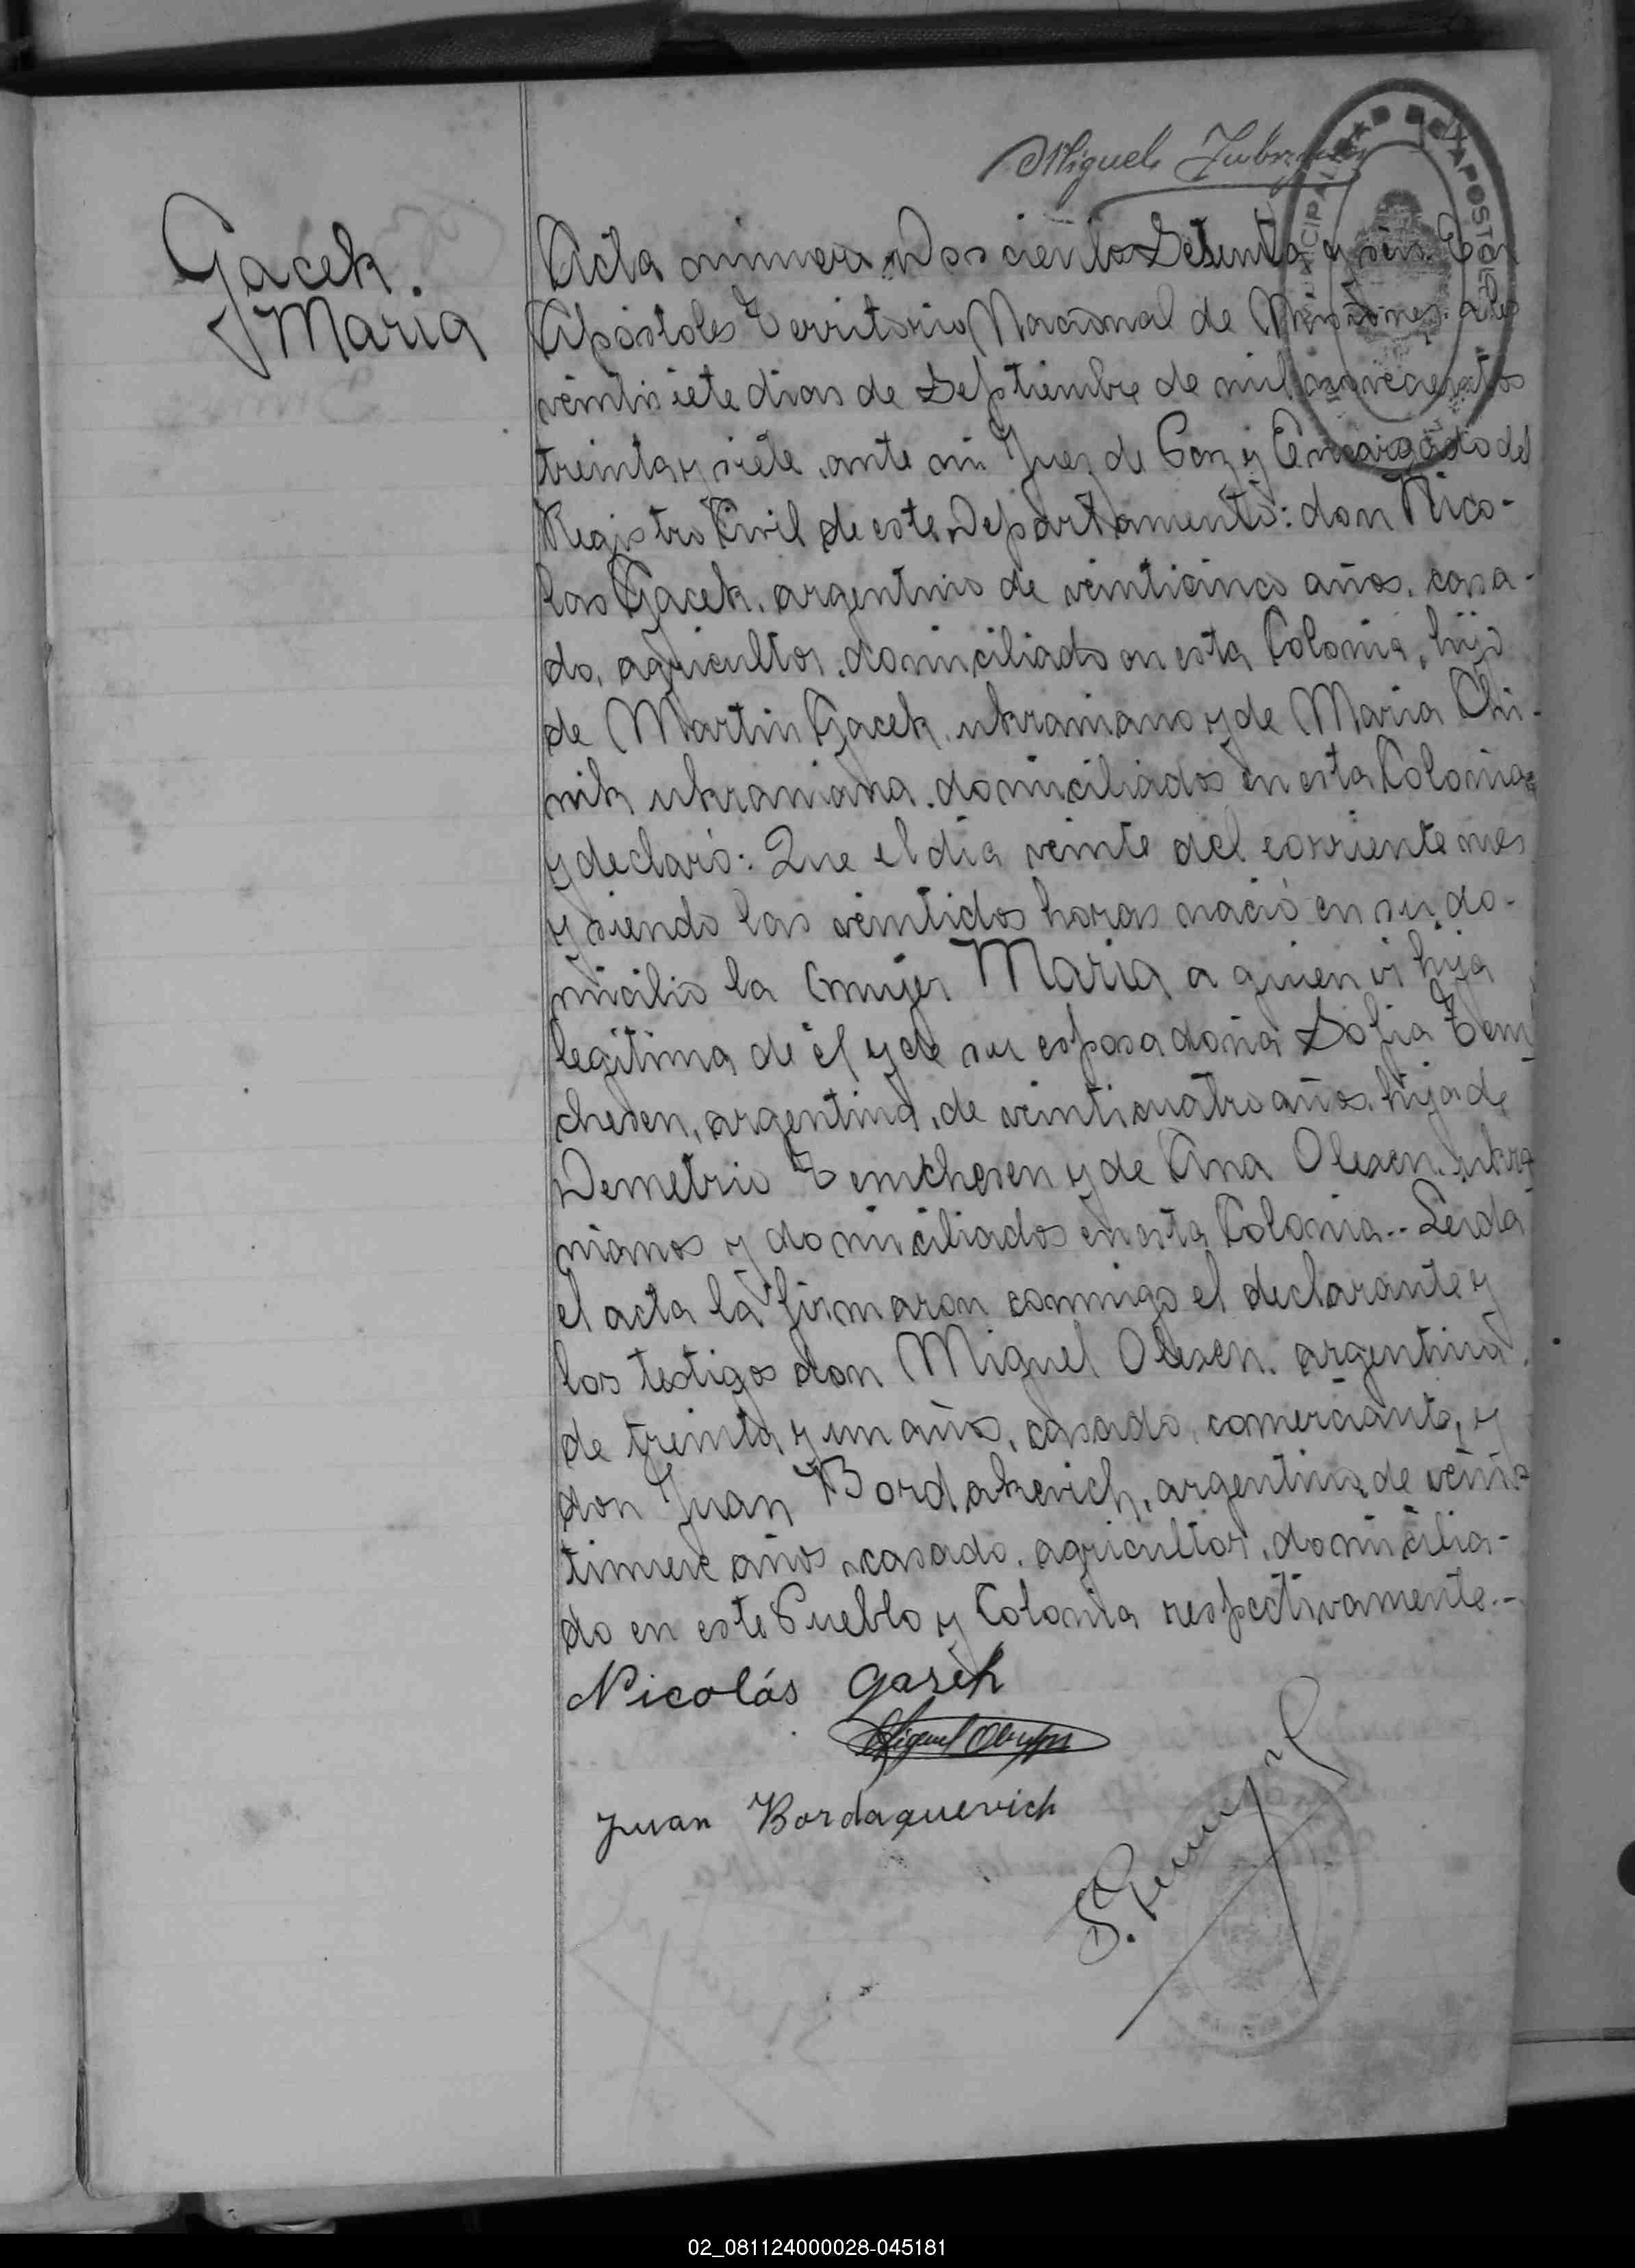 Miguel
MUNICIPALIDAD DE APOSTOLES
Gacek
Maria
Acta número Doscientos Setenta y seis. En
Apóstoles Territorio Nacional de Misiones a los
veintisiete dias de Septiembre de mil novecientos
treinta y siete, ante mi Juez de Paz y Encargado del
Registro Civil de este Departamento: don Nico-
las Gacek, argentino de veinticinco años, casa-
do, agricultor, domiciliado en esta Colonia, hijo
de Martin Gacek, ukraniano y de Maria Chi-
nik ukraniana, domiciliados en esta Colonia
y declaró: Que el dia veinte del corriente mes
y siendo las veintidos horas nació en su do-
micilio la mujer Maria a quien vi hija
legitima de él y de su esposa doña Sofia Tem
cheson, argentina, de veinticuatro años, hija de
Demetrio Temcheson y de Ana Olexen, ukra
nianos y domiciliados en esta Colonia.- Leida
el acta la firmaron conmigo el declarante y
los testigos don Miguel Olexen, argentino,
de treinta y un años, casado, comerciante, y
don Juan Bordakevich, argentino, de vein-
tinueve años, casado, agricultor, domicilia-
do en este Pueblo y Colonia respectivamente.-
Nicolás Gasek
Miguel
Juan Bordaquevich
02_081124000028-045181